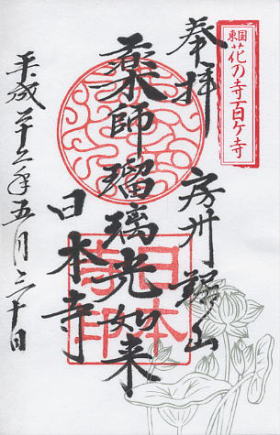 東国
花の寺百ヶ寺
奉拝
房州鋸山
薬師瑠璃光如来
日本寺
平成二十三年五月三十日
日本寺印